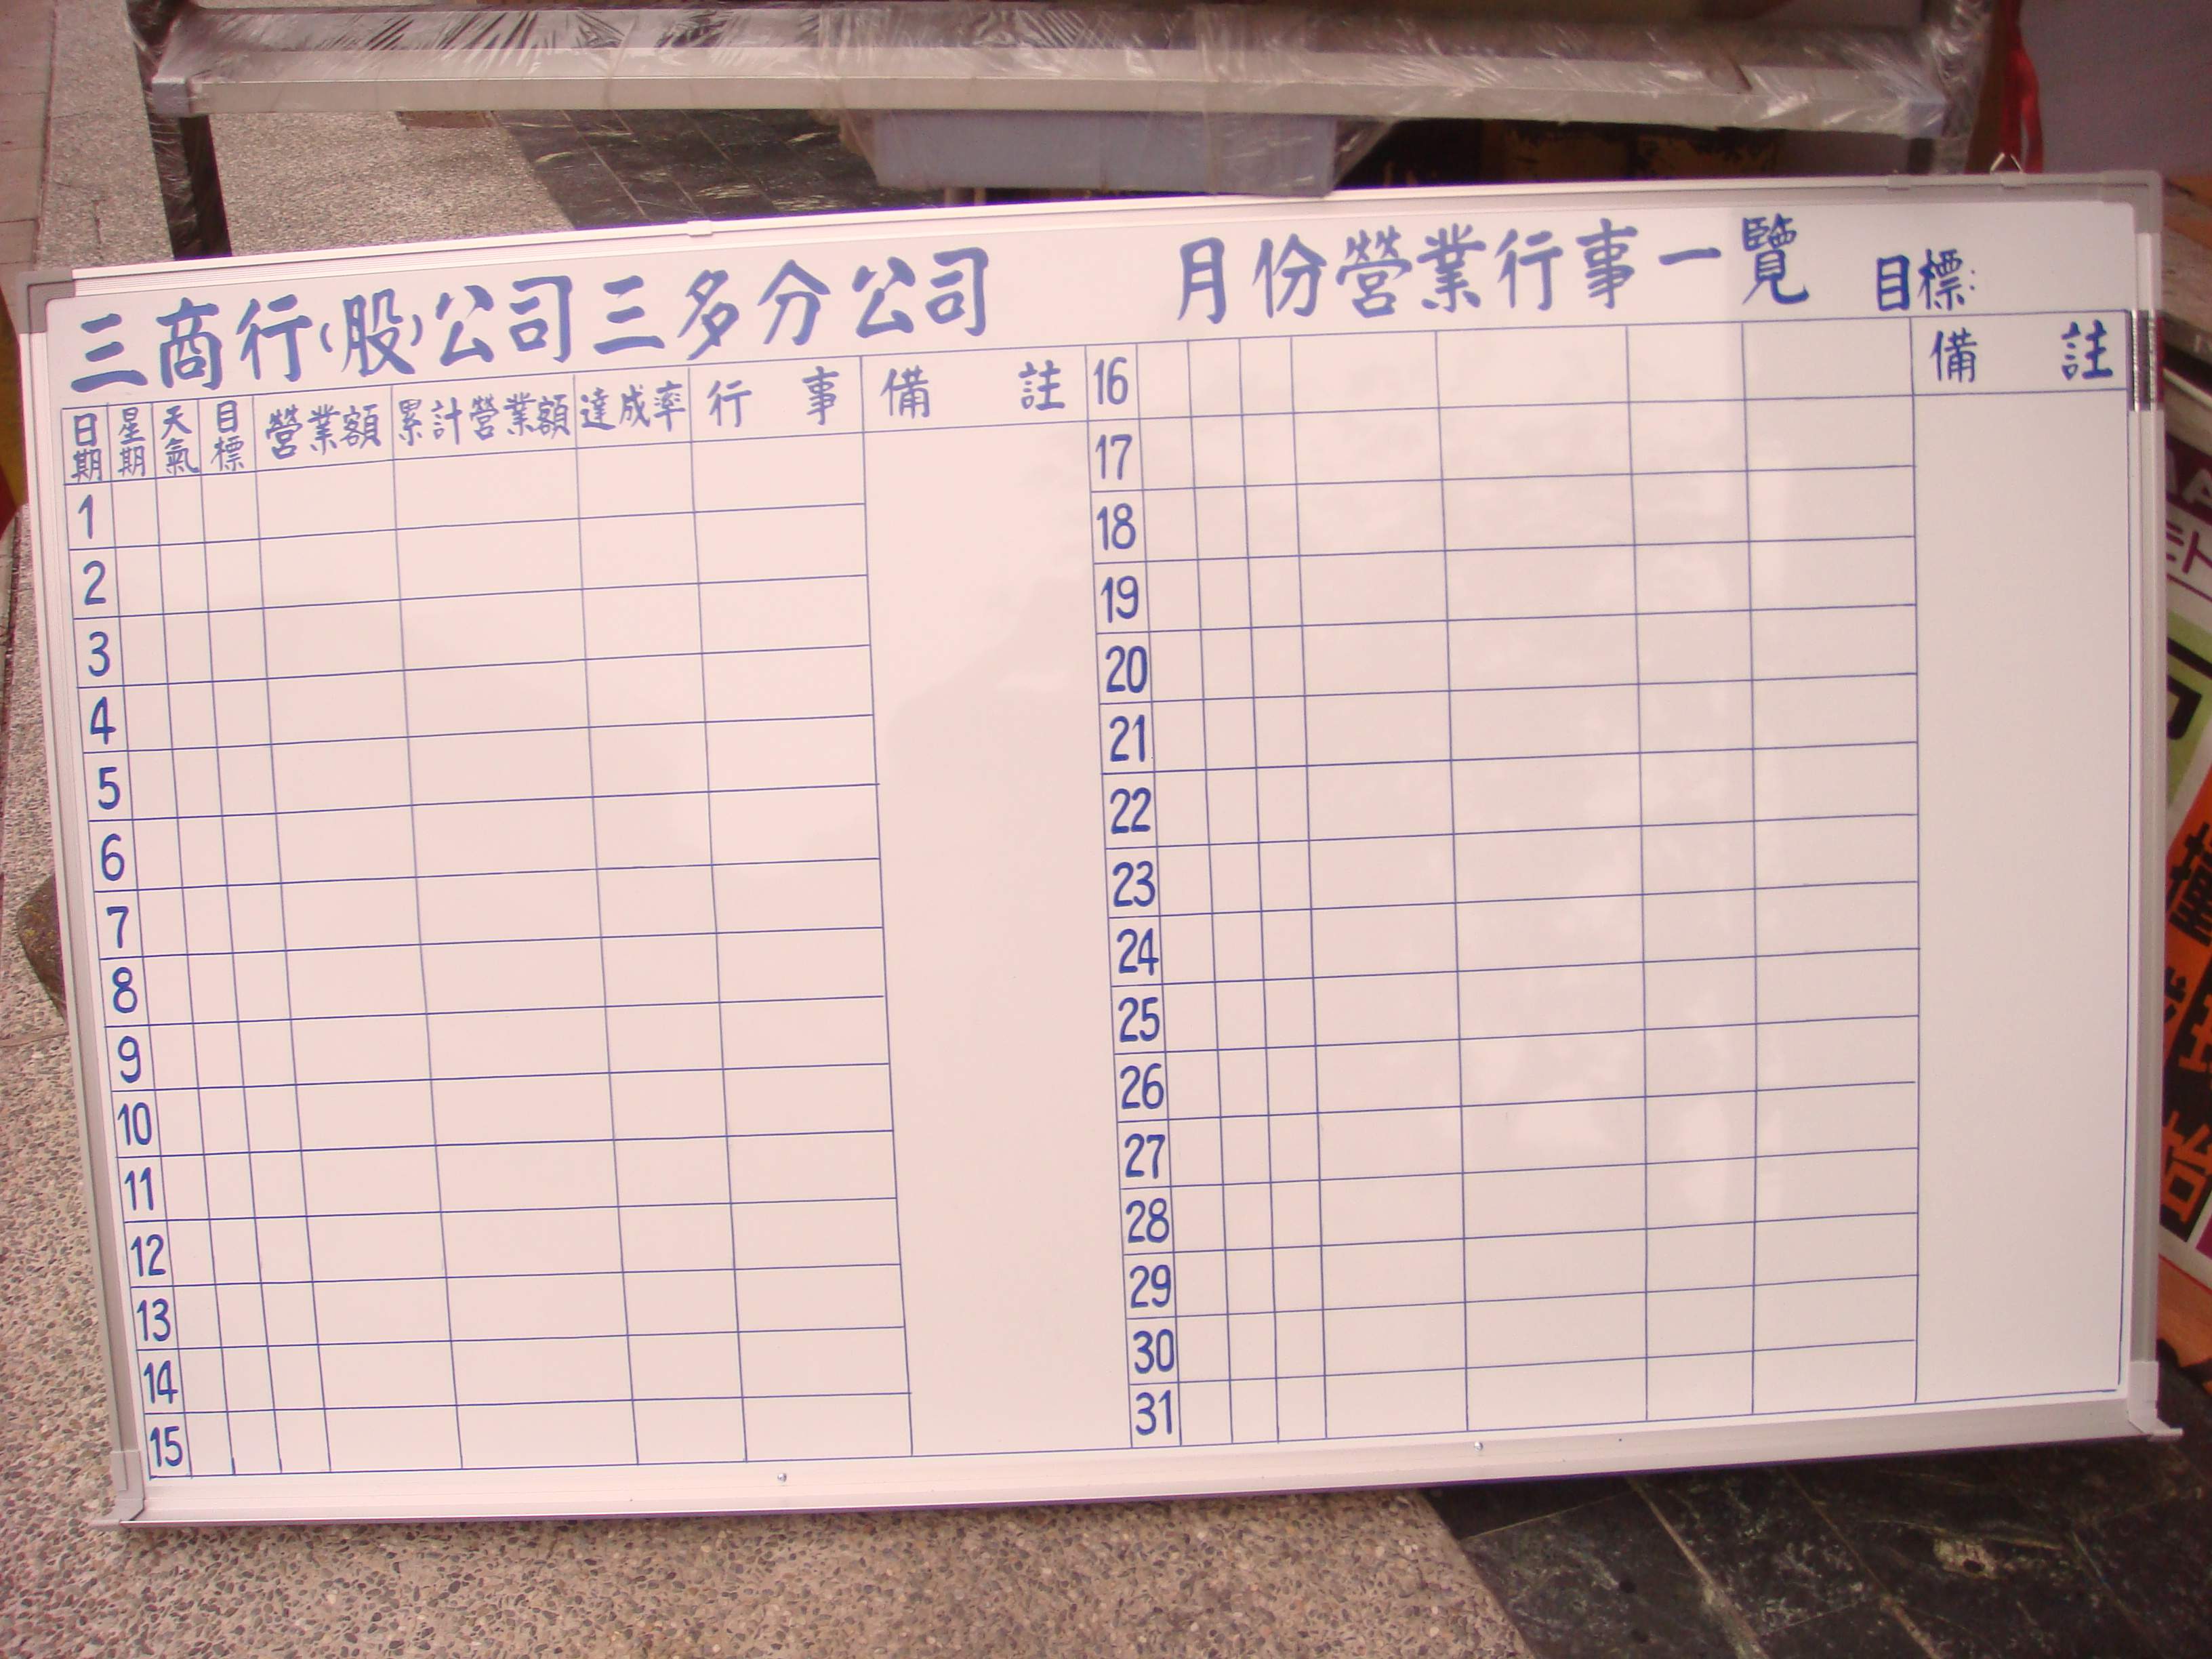 三商行(股)公司三多分公司 月份營業行事一覽 目標:
日期 星期 天氣 目標 營業額 累計營業額 達成率 行事 備註
1
2
3
4
5
6
7
8
9
10
11
12
13
14
15
16 備註
17
18
19
20
21
22
23
24
25
26
27
28
29
30
31